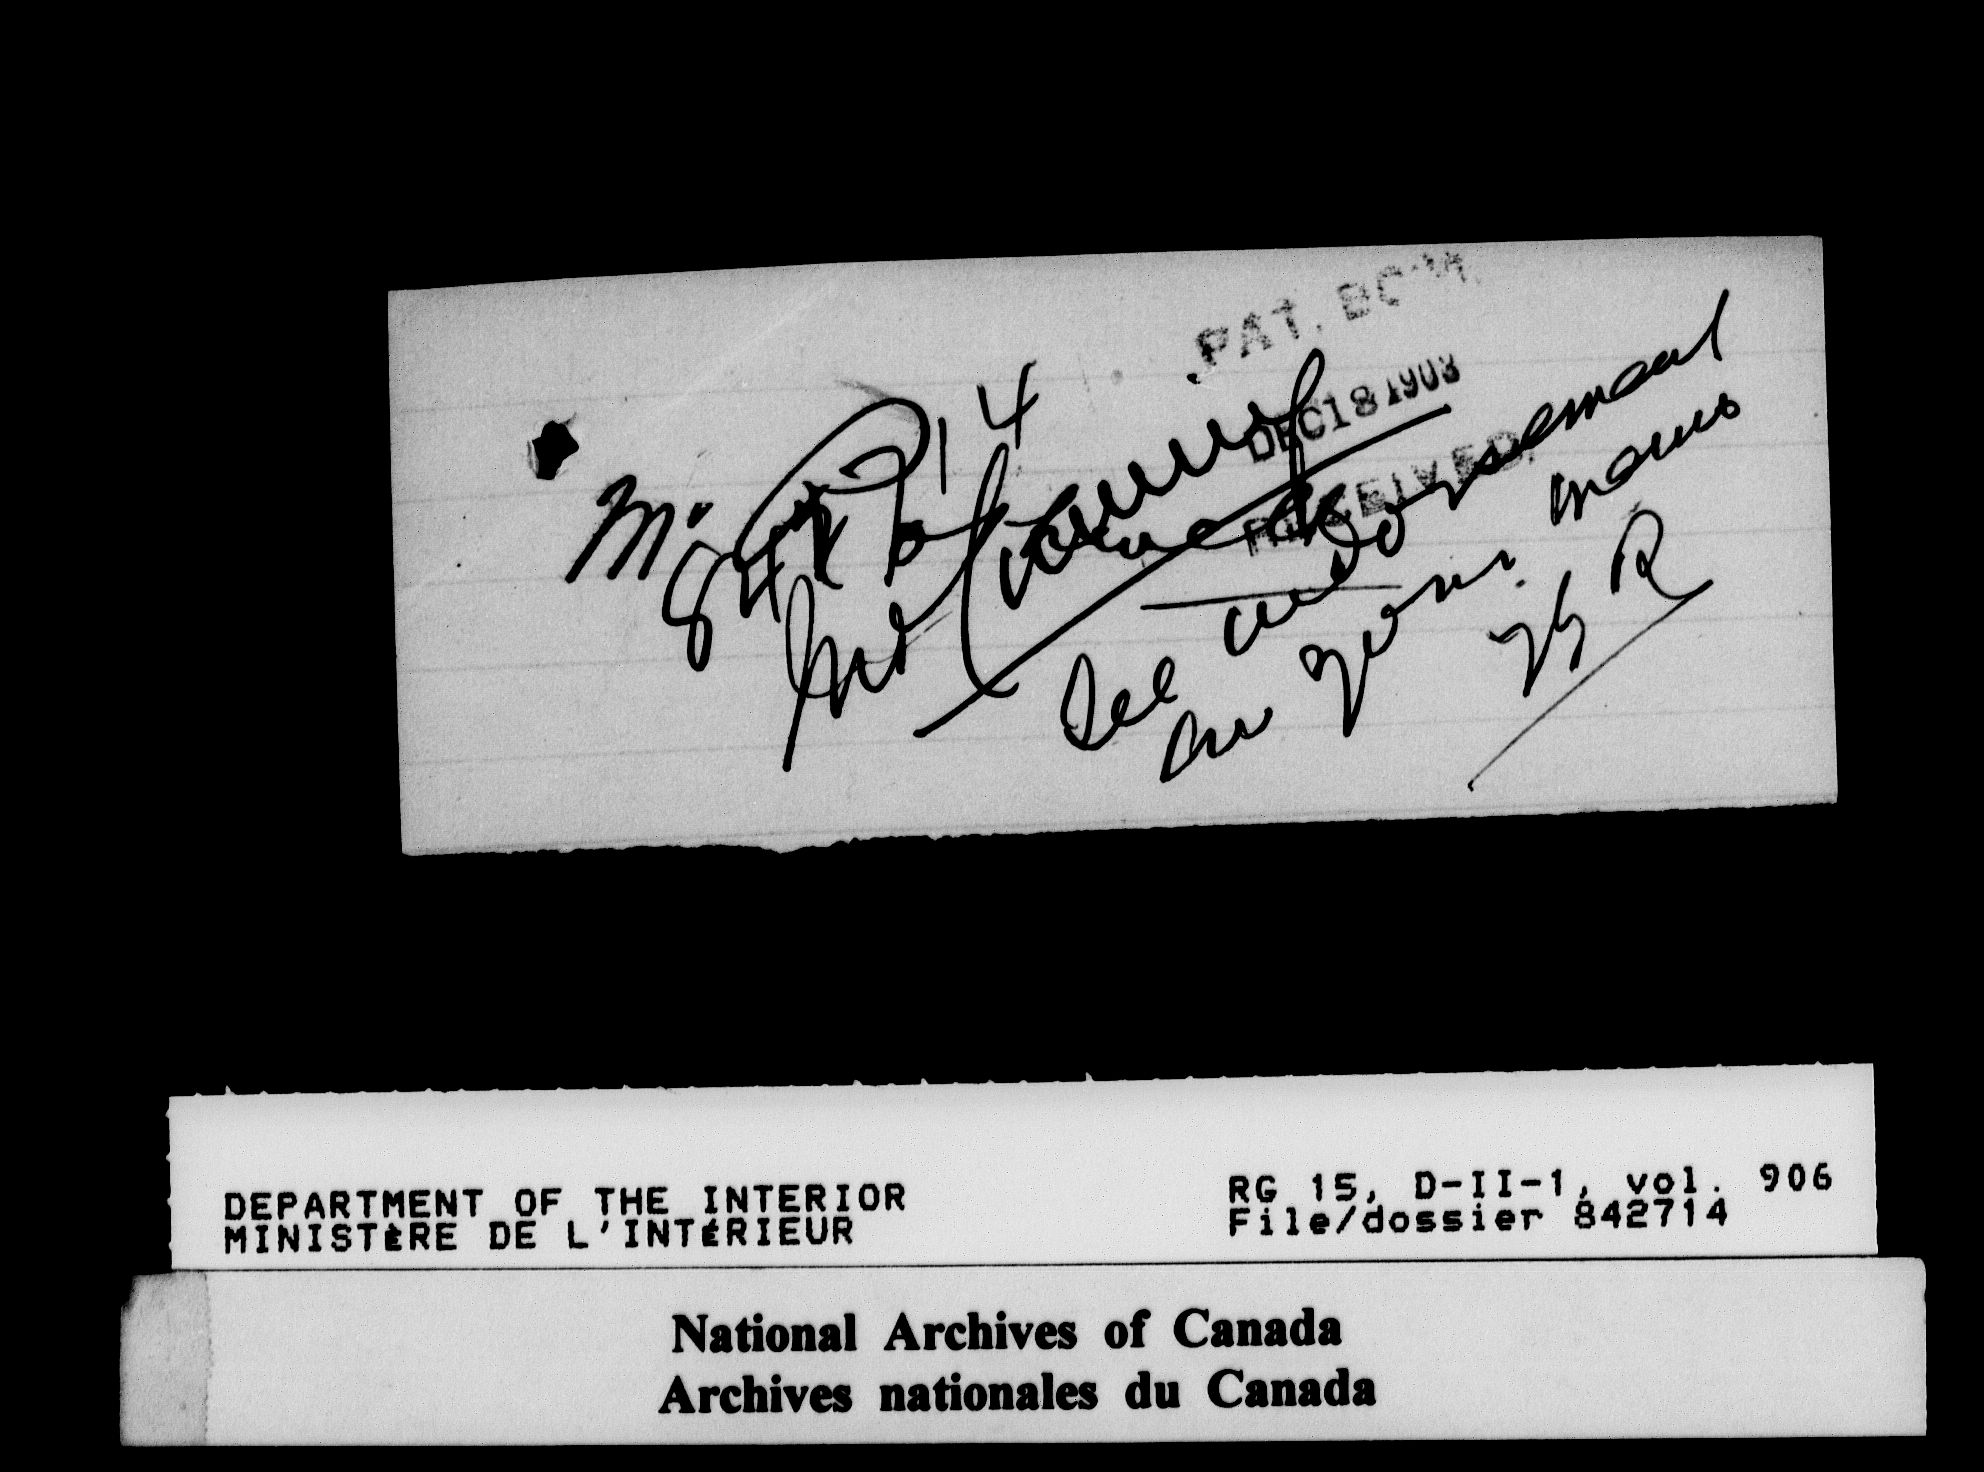 PAT. BCH.
DEC 18 1903
RECEIVED
Mr
842714
See endorsement
on your memo
R
DEPARTMENT OF THE INTERIOR
MINISTÈRE DE L'INTÉRIEUR
RG 15, D-II-1, vol. 906
File/dossier 842714
National Archives of Canada
Archives nationales du Canada